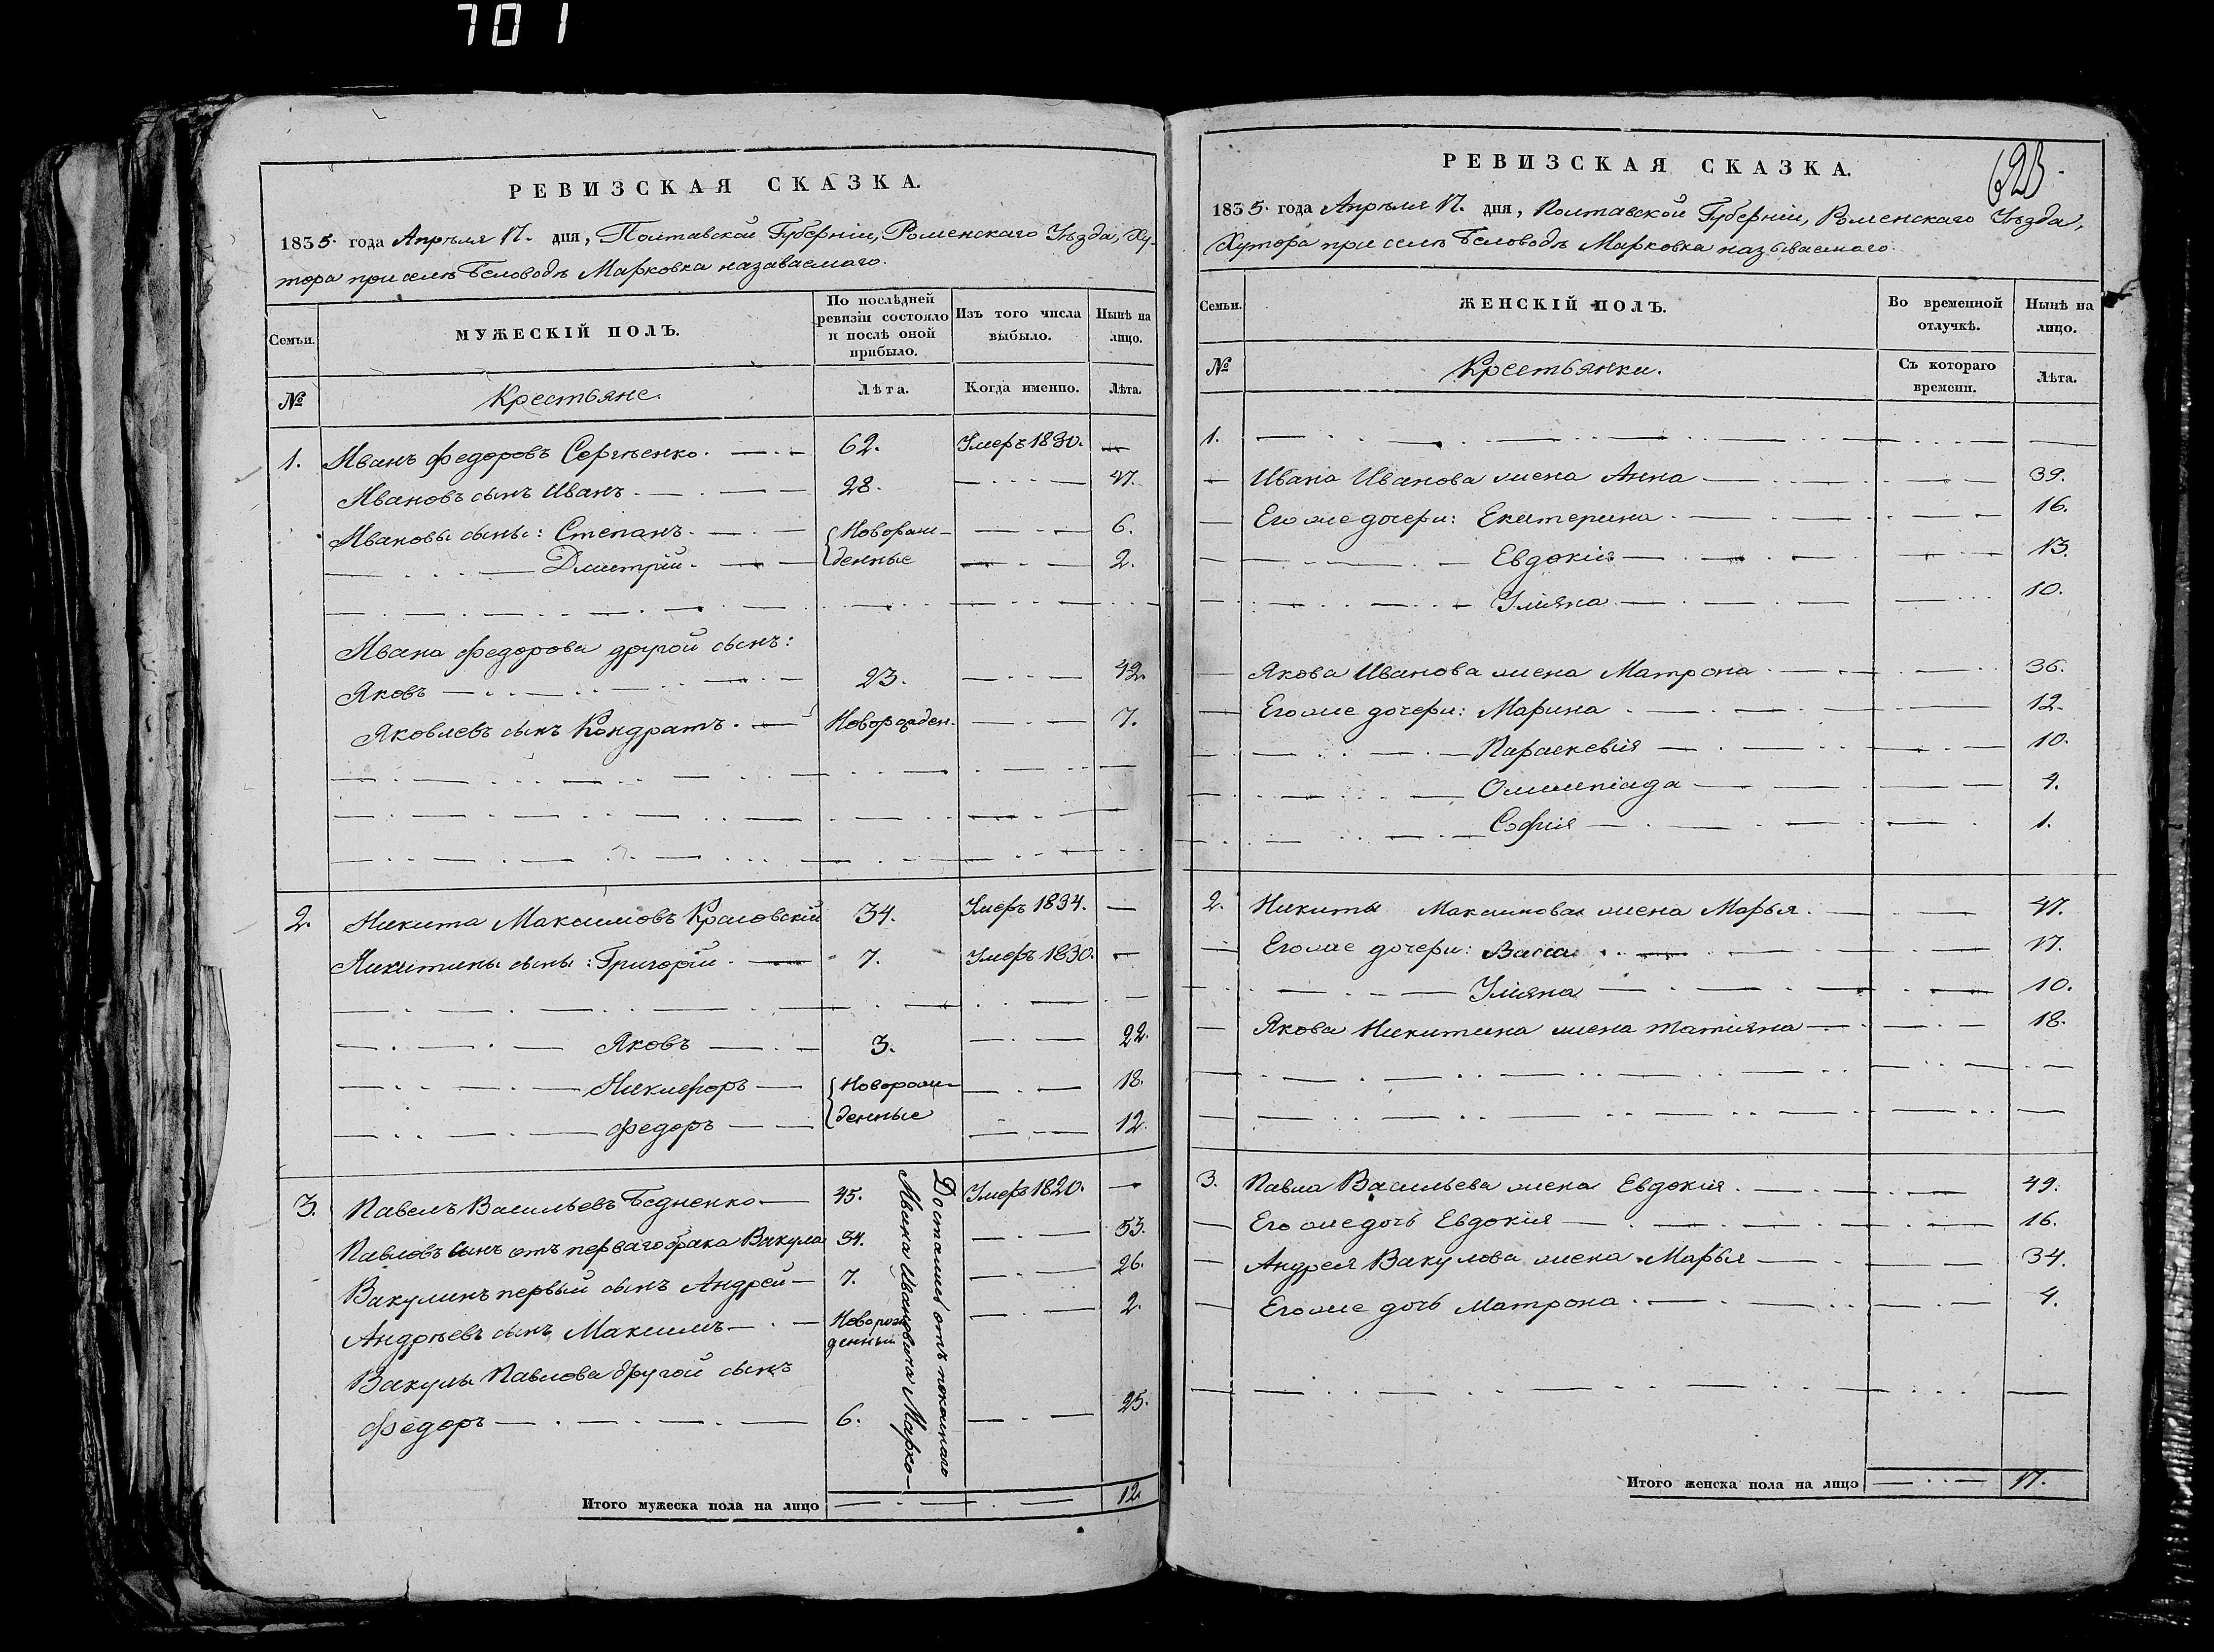 701
РЕВИЗСКАЯ СКАЗКА.
1835. года Апрѣля 17. дня, Полтавской Губерніи, Роменскаго Уѣзда, Ху-
тора при селѣ Бѣловодѣ Марковка називаемаго.
Семьи. МУЖЕСКІЙ ПОЛЪ. По послѣдней ревизіи состояло и послѣ оной прибыло. Изъ того числа выбыло. Нынѣ на лицо.
№ Крестьяне. Лѣта. Когда именно. Лѣта.
1. Иванъ Федоровъ Сергѣенко. 62. Умеръ 1830. —
Ивановъ сынъ Иванъ. 28. 47.
Ивановы сыны: Степанъ. Новорож- 6.
Дмитрій. денные 2.
Ивана Федорова другой сынъ:
Яковъ 23. 42.
Яковлевъ сынъ Кондратъ. Новорожден. 7.
2. Никита Максимовъ Красовскій 34. Умеръ 1834. —
Никитины сыны: Григорій. 7. Умеръ 1830. —
Яковъ 3. 22.
Никифоръ Новорож- 18.
Федоръ денные 12.
3. Павелъ Васильевъ Бедненко 45. Умеръ 1820. —
Павловъ сынъ отъ перваго брака Вакула 34. 53.
Вакулинъ первый сынъ Андрей 7. 26.
Андрѣевъ сынъ Максимъ Новорож- 2.
денный
Вакулы Павлова другой сынъ
Федоръ 6. 25.
Достались отъ покойнаго
Ивана Ивановича Марко-
Итого мужеска пола на лицо 12
623.
РЕВИЗСКАЯ СКАЗКА.
1835. года Апрѣля 17. дня, Полтавской Губерніи, Роменскаго Уѣзда,
Хутора при селѣ Бѣловодѣ Марковка называемаго.
Семьи. ЖЕНСКІЙ ПОЛЪ. Во временной отлучкѣ. Нынѣ на лицо.
№ Крестьянки. Съ котораго времени. Лѣта.
1.
Ивана Иванова жена Анна 39.
Его же дочери: Екатерина 16.
Евдокія 13.
Уліяна 10.
Якова Иванова жена Матрона 36.
Его же дочери: Марина 12.
Параскевія 10.
Олимпіада 4.
Софія 1.
2. Никиты Максимова жена Марья. 47.
Его же дочери: Васса 17.
Уліяна 10.
Якова Никитина жена Татіяна 18.
3. Павла Васильева жена Евдокія. 49.
Его же дочь Евдокія 16.
Андрея Вакулова жена Марья 34.
Его же дочь Матрона. 4.
Итого женска пола на лицо 17.